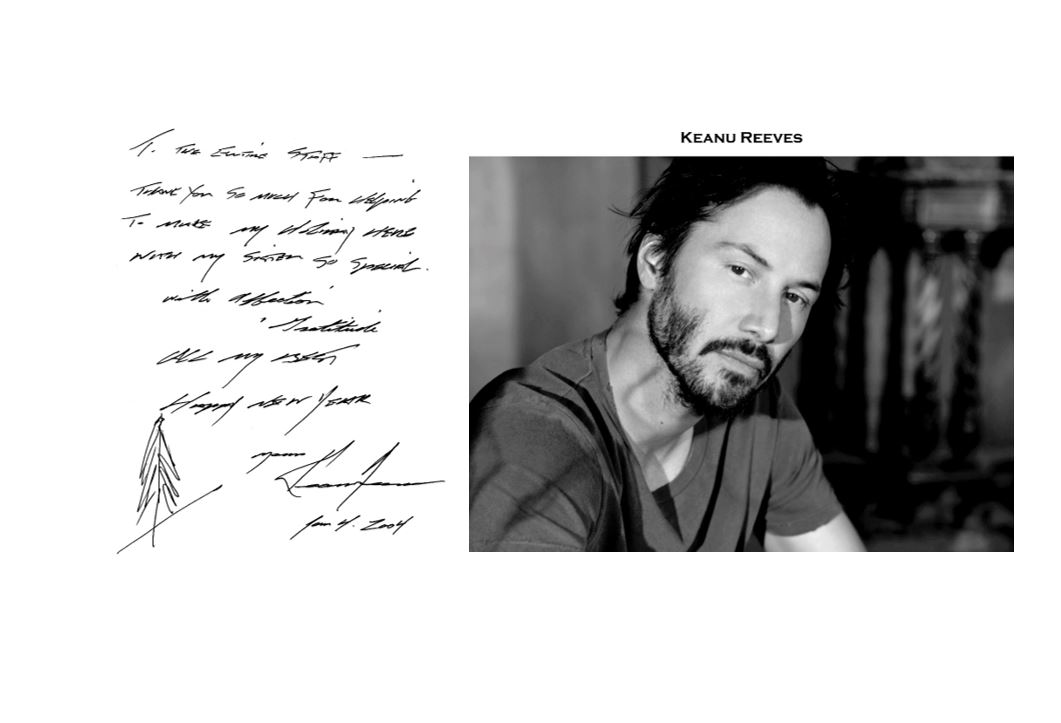 To The Entire Staff —
Thank you so much for helping
To make my visiting here
with my sister so special.
with affection
Gratitude
All my best
Happy New Year
yours
Jan 4. 2004
KEANU REEVES